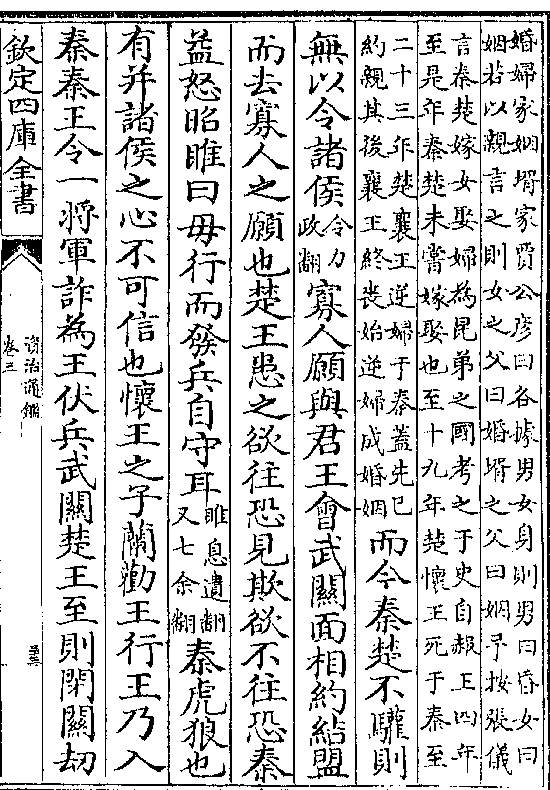 婚婦家姻壻家賈公彦曰各據男女身則男曰昏女曰
姻若以親言之則女之父曰婚壻之父曰姻予按張儀
言秦楚嫁女娶婦為昆弟之國考之于史自赧王四年
至是年秦楚未嘗嫁娶也至十九年楚懷王死于秦至
二十三年楚襄王逆婦于秦蓋先已
約親其後襄王終喪始逆婦成婚姻
而今秦楚不驩則
無以令諸侯
令力
政翻
寡人願與君王會武關面相約結盟
而去寡人之願也楚王患之欲往恐見欺欲不往恐秦
益怒昭睢曰毋行而發兵自守耳
睢息遺翻
又七余翻
秦虎狼也
有并諸侯之心不可信也懷王之子蘭勸王行王乃入
秦秦王令一將軍詐為王伏兵武關楚王至則閉關劫
欽定四庫全書
資治通鑑
卷三